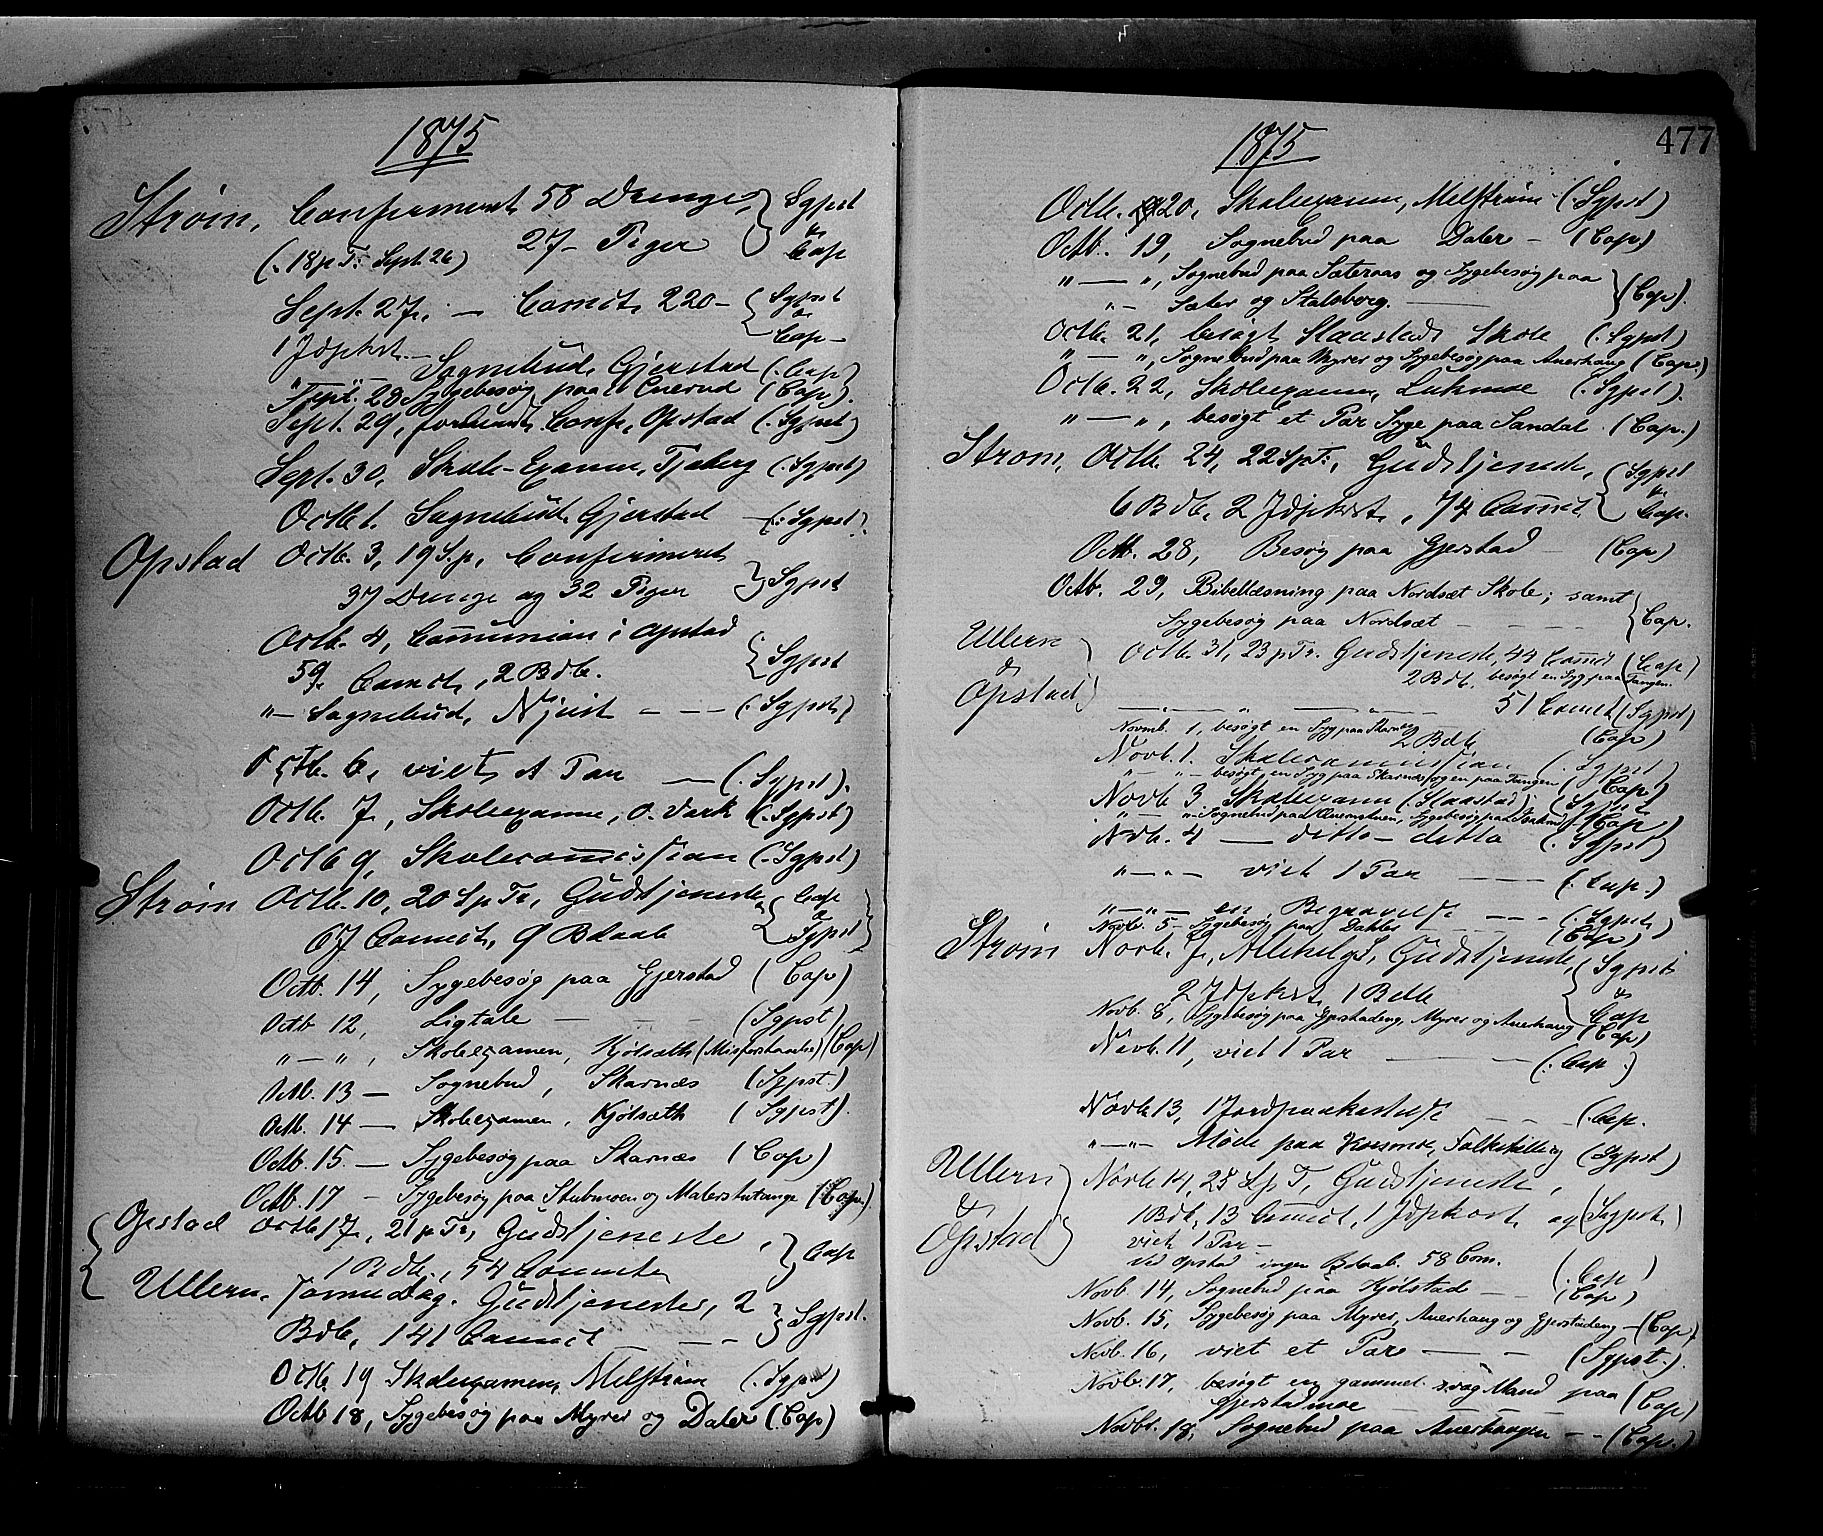 1875
Strøm, Confirmeret 58 Drenge, } Sgpst
(18 p. Tr. Sept. 26) 27 - Piger } & Cap
Sept. 27, — Comct. 220 - { Sgpst & Cap -
1 Jdpkst. — Sognebud, Gjerstad (Cap)
Sept. 28 Sygebesøg paa (Cap).
Sept. 29, Conf. Opstad (Sgpst)
Sept. 30, Skole-Examen, Tjaberg (Sgpst)
Octb 1. Sognebud, Gjerstad - (Sgpst).
Opstad Octb. 3, 19 S. p. Confirmeret
37 Drenge og 32 Piger } Sgpst
Octb. 4, Communion i Opstad
59 Comct, 2 Bdb. { Sgpst
" — Sognebud, Njust - - - (Sgpst)
Octb. 6, viet et Par — (Sgpst).
Octb. 7, Skoleexamen, O. Vark (Sgpst)
Octb 9, Skolecommission (Sgpst)
Strøm Octb. 10, 20 S p Tr, Gudstjeneste, { Cap
67 Comct, 9 Bdaab { & Sgpst }
Octb. 14, Sygebesøg paa Gjerstad (Cap)
Octb 12, Ligtale - - - (Sgpst)
" — ", Skoleexamen, Kjølsæth (Misforstaaelse) (Cap)
Octb. 13 — Sognebud, Skarnæs (Sgpst.)
Octb. 14 — Skoleexamen, Kjølsæth (Sgpst).
Octb. 15. — Sygebesøg paa Skarnæs (Cap)
Octb. 17 - Sygebesøg paa Stubmoen og Malerstutange (Cap.)
Opstad Octb 17, 21 p Tr, Gudstjeneste, } Cap
1 Bdb., 54 Comct
Ullern. samme Dag. Gudstjeneste, 2
Bdb, 141 Comct - - } Sgpst.
Octb. 19 Skoleexamen, Melstrøm (Sgpst)
Octb 18, Sygebesøg paa Myrer og Daler (Cap)
1875
477
Octb. 20, Skoleexamen, Melstrøm (Sgpst)
Octb. 19, Sognebud paa Daler - (Cap)
" — ", Sognebud paa Sæteraas og Sygebesøg paa
" - Sæter og Stalsberg. — } (Cap).
Octb. 21, besøgt Slaastads Skole (Sgpst)
" — ", Sognebud paa Myrer og Sygebesøg paa Auerhaug (Cap)
Octb. 22, Skoleexamen, Lukmoe (Sgpst).
" — ", besøgt et Par Syge paa Sandal (Cap.)
Strøm, Octb. 24, 22 S p T., Gudstjeneste, { Sgpst
6 Bdb, 2 Jdpkst, 74 Comct. { & Cap.
Octb. 28, Besøg paa Gjerstad - (Cap)
Octb. 29, Bibellæsning paa Nordsæt Skole; samt
Sygebesøg paa Nordsæt - - - - { Cap.
Ullern & Opstad
Octb. 31, 23 p Tr. Gudstjeneste, 44 Comct (Cap)
2 Bdb, besøgt en Syg paa Tangen.
— " — " — 51 Comct (Sgpst)
Novmb. 1, besøgt en Syg paa Skarnæs (Cap)
2 Bdb
Novb. 1. Skolecommission (Sgpst)
" - " - besøgt en Syg paa Skarnæs og en paa Tangen (Cap)
Novb 3. Skoleexamen (Slaastad) (Sgpst)
" - " - Sognebud paa Sygebesøg paa (Cap)
Nvb. 4 — ditto - ditto (Sgpst)
" — " - viet 1 Par — (Cap.)
" — " - en Begravelse - - - (Sgpst)
Novb. 5 - Sygebesøg paa Dahler - - - (Cap)
Strøm Novb. 7, Allehelg S, Gudstjeneste, { Sgpst
2 Jdpkst, 1 Bdb { & Cap
Novb. 8, Sygebesøg paa Gjerstadeng, Myrer og Auerhaug (Cap)
Novb. 11, viet 1 Par — — (Cap.)
Novb 13, 1 Jordpaakastelse - - (Cap.
" — " - Møde paa Korsmoe, (Sgpst)
Ullern & Opstad
Novb 14, 25 S p T, Gudstjeneste,
1 Bdb, 13 Comct, 1 Jdpkst, og (Sgpst)
viet 1 Par -
ved Opstad ingen Bdaab. 58 Com. (Cap)
Novb. 14, Sognebud paa Kjølstad - - (Cap)
Novb. 15, Sygebesøg paa Myrer, Auerhaug og Gjerstadeng - (Cap)
Novb. 16, viet et Par — - (Sgpst.).
Novb. 17, besøgt en gammel svag Mand paa
Gjerstadmoe — — (Cap)
Novbr. 18, Sognebud paa Auerhaugen - - (Cap.)